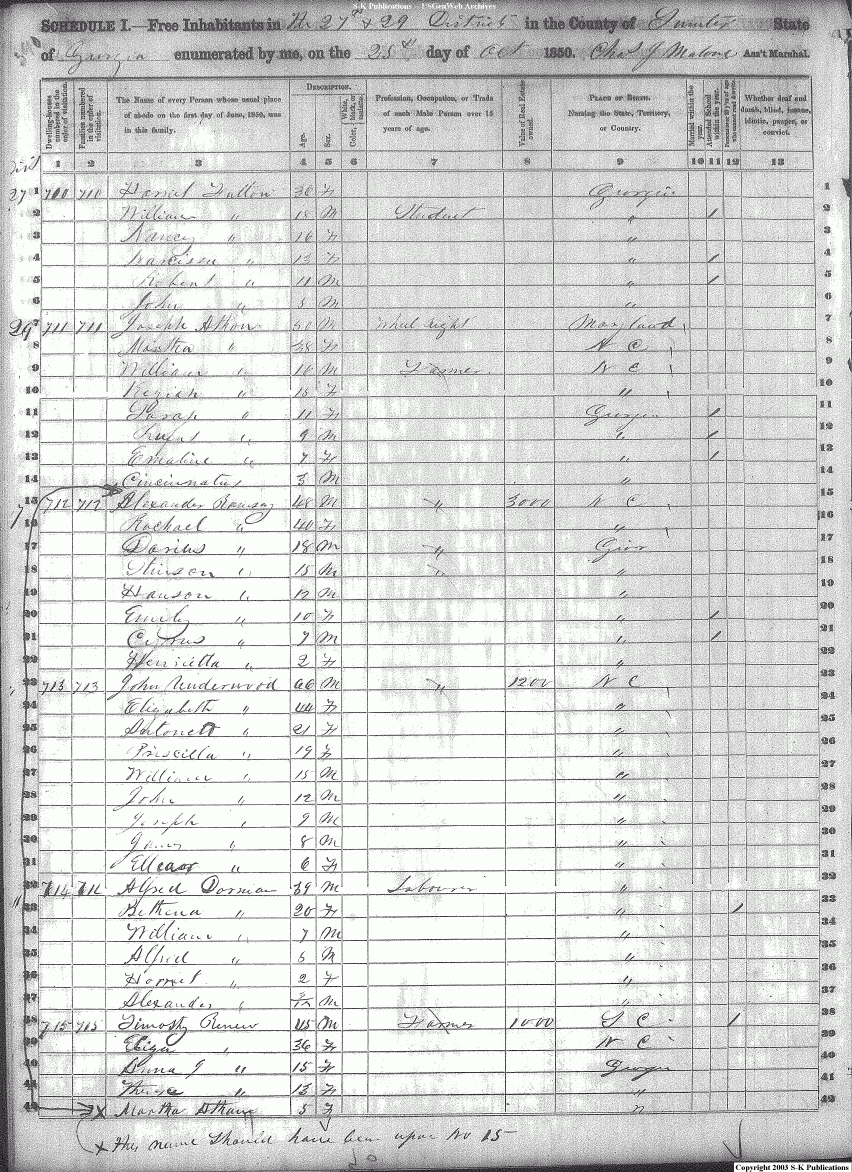 S-K Publications USGenWeb Archives
SCHEDULE I.—Free Inhabitants in No 27th & 29 District in the County of Sumter State
of Georgia enumerated by me, on the 25th day of Oct 1850. Chas J Malone Ass't Marshal.
Dwelling-houses numbered in the order of visitation. Families numbered in the order of visitation. The Name of every Person whose usual place of abode on the first day of June, 1850, was in this family. DESCRIPTION. Age. Sex. Color, White, black, or mulatto. Profession, Occupation, or Trade of each Male Person over 15 years of age. Value of Real Estate owned. PLACE OF BIRTH. Naming the State, Territory, or Country. Married within the year. Attended School within the year. Whether deaf and dumb, blind, insane, idiotic, pauper, or convict.
1 2 3 4 5 6 7 8 9 10 11 12 13
27 1 710 710 Harriet 36 F Georgia 1
2 William " 18 M Student " / 2
3 Nancy " 16 F " 3
4 Narcissa " 13 F " / 4
5 Robert " 11 M " / 5
6 John " 5 M " 6
29 7 711 711 Joseph 50 M Wheel right Maryland 7
8 Martha " 38 F N C 8
9 William " 16 M Farmer N C 9
10 Keziah " 15 F " 10
11 Sarah " 11 F Georgia / 11
12 " 9 M " / 12
13 Emaline " 7 F " / 13
14 Cincinnatus 3 M " 14
15 712 712 Alexander Ramsay 48 M " 3000 N C 15
16 Rachael " 40 F " 16
17 Darius " 18 M " Geor 17
18 Stinson " 15 M " " 18
19 Hanson " 12 M " 19
20 Emily " 10 F " / 20
21 Cyrus " 7 M " / 21
22 Henrietta " 2 F " 22
23 713 713 John Underwood 66 M " 1200 N C 23
24 Elizabeth " 44 F " 24
25 Antonett " 21 F " 25
26 Priscilla " 19 F " 26
27 William " 15 M " 27
28 John " 12 M " 28
29 Joseph " 9 M " 29
30 James " 8 M " 30
31 Elleanor " 6 F " 31
32 714 714 Alfred Dorman 39 M Labourer " 32
33 Bethena " 20 F " / 33
34 William " 7 M " 34
35 Alfred " 5 M " 35
36 Harriet " 2 F " 36
37 Alexander " M " 37
38 715 715 Timothy Renew 45 M Farmer 1000 S C / 38
39 Eliza " 36 F N C 39
40 Anna J " 15 F Georgia 40
41 " 13 F " 41
42 x Martha 5 F " 42
x this name should have been upon No 15
Copyright 2003 S-K Publications